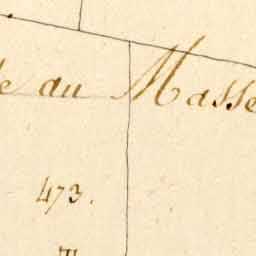 au Masse
473.